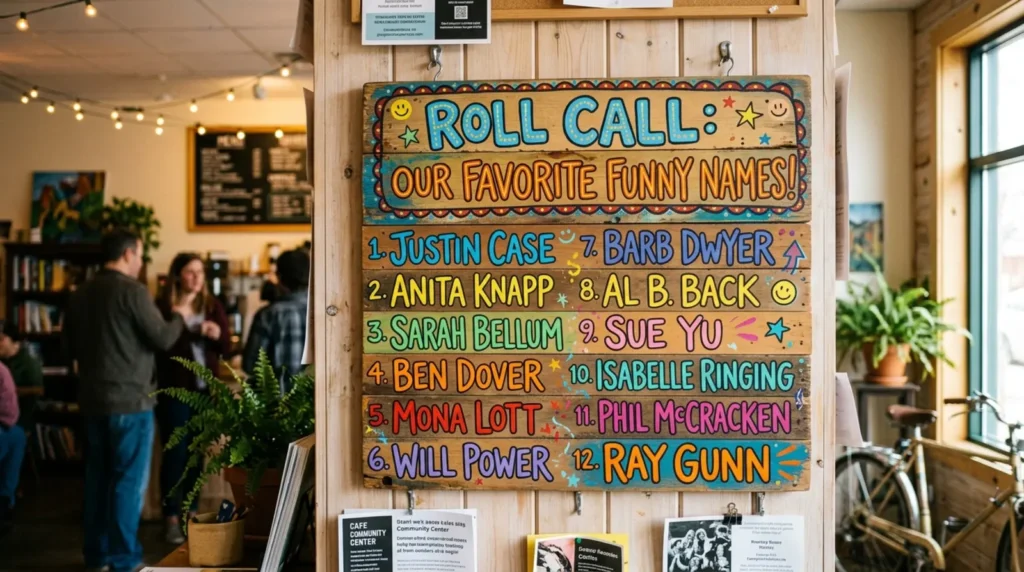 ROLL CALL:
OUR FAVORITE FUNNY NAMES!
1. JUSTIN CASE
2. ANITA KNAPP
3. SARAH BELLUM
4. BEN DOVER
5. MONA LOTT
6. WILL POWER
7. BARB DWYER
8. AL B. BACK
9. SUE YU
10. ISABELLE RINGING
11. PHIL McCRACKEN
12. RAY GUNN
CAFE
COMMUNITY
CENTER
Community Center